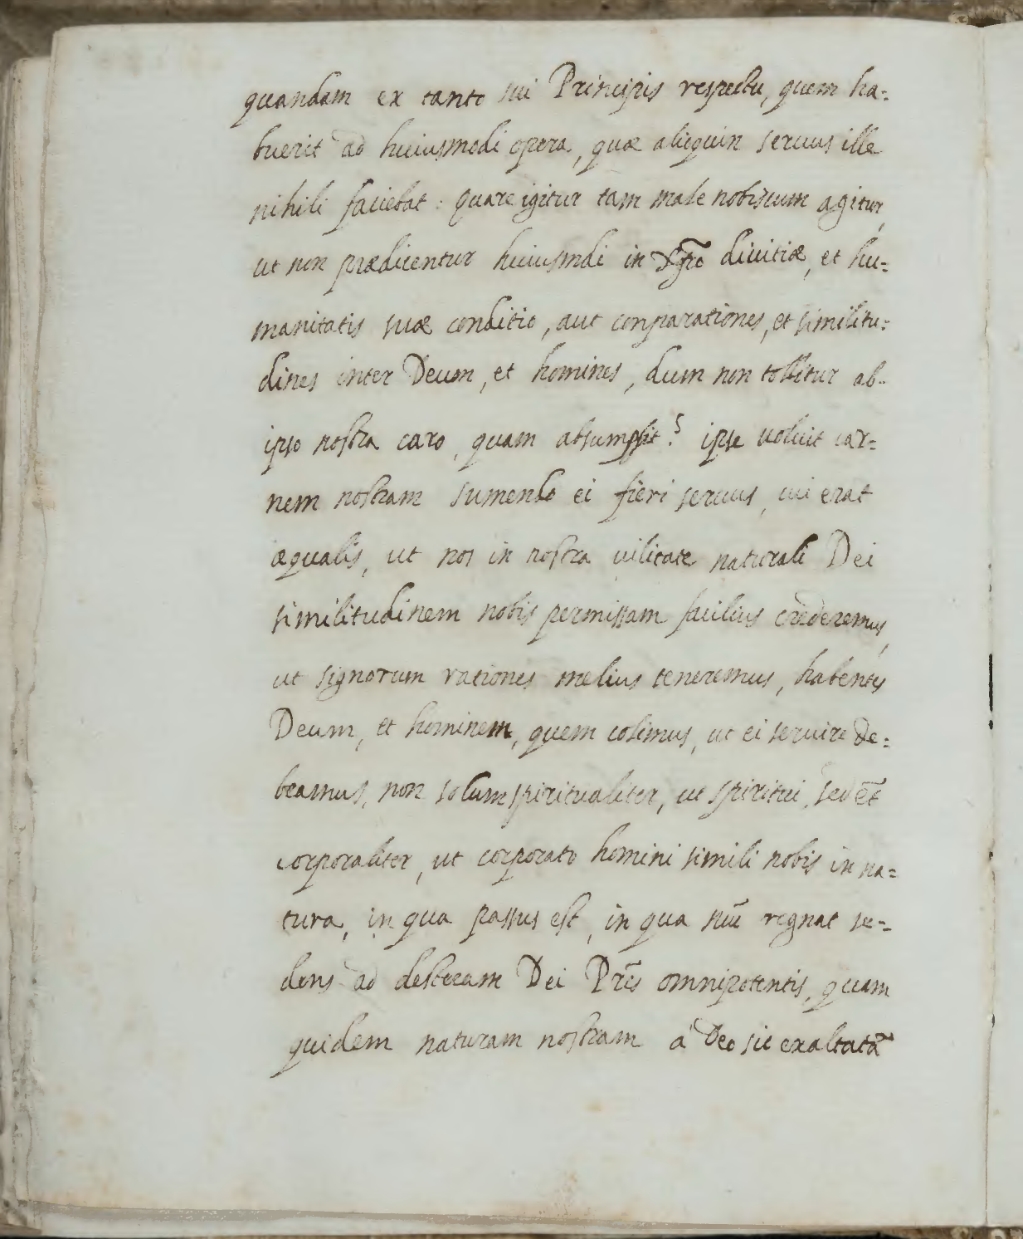 quandam ex tanto sui Principis respectu, quem ha-
buerit ad huiusmodi opera, quæ alioquin seruus ille
nihili faciebat: quare igitur tam male nobiscum agitur,
ut non prædicentur huiusmdi in Xp̃o diuitiæ, et hu-
manitatis suæ conditio, aut conparationes, et similitu-
dines inter Deum, et homines, dum non tollitur ab-
ipso nostra caro, quam absumpsit? ipse uoluit car-
nem nostram sumendo ei fieri seruus, cui erat
æqualis, ut nos in nostra uilitate naturali Dei
similitudinem nobis permissam facilius crederemus,
ut signorum rationes melius teneremus, habentes
Deum, et hominem, quem colimus, ut ei seruire de-
beamus, non solum spiritualiter, ut spiritui, sed et̃
corporaliter, ut corporato homini simili nobis in na-
tura, in qua passus est, in qua nũc regnat se-
dens ad desteram Dei Pr̃is omnipotentis, quam
quidem naturam nostram a' Deo sic exaltatã